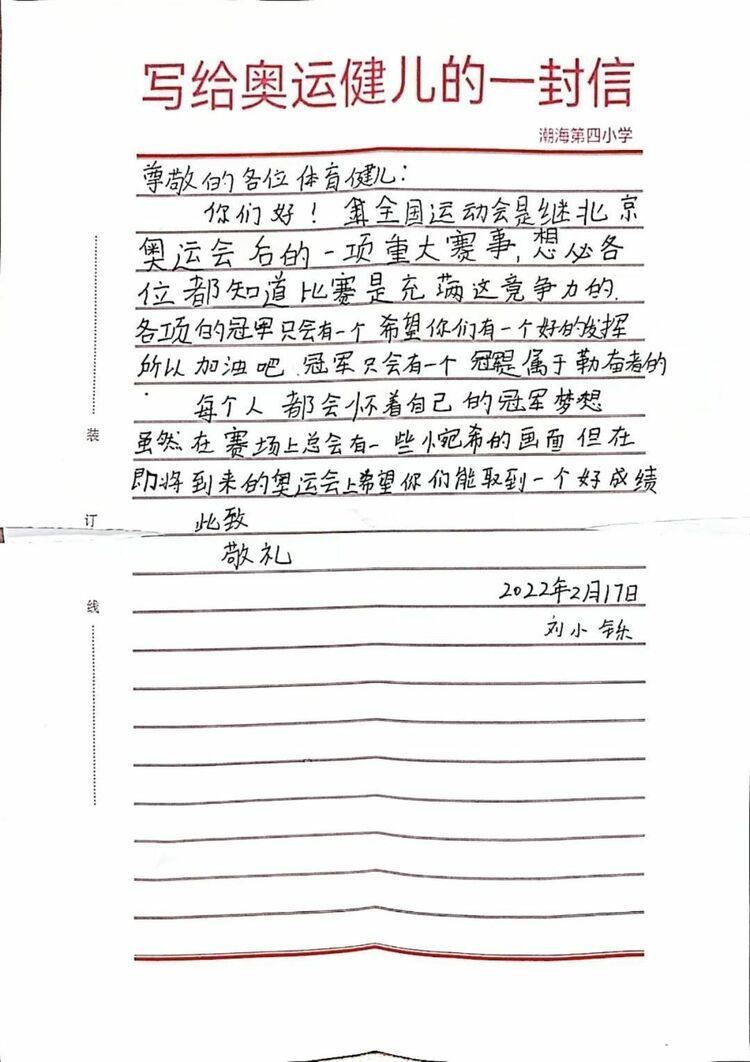 写给奥运健儿的一封信
潮海第四小学
尊敬的各位体育健儿：
你们好！全国运动会是继北京
奥运会后的一项重大赛事,想必各
位都知道比赛是充满这竞争力的.
各项的冠军只会有一个 希望你们有一个好的发挥
所以加油吧.冠军只会有一个 冠军是属于勤奋者的
每个人都会怀着自己的冠军梦想
虽然在赛场上总会有一些小惋希的画面但在
即将到来的奥运会上希望你们能取到一个好成绩
此致
敬礼
2022年2月17日
刘小铄
装
订
线